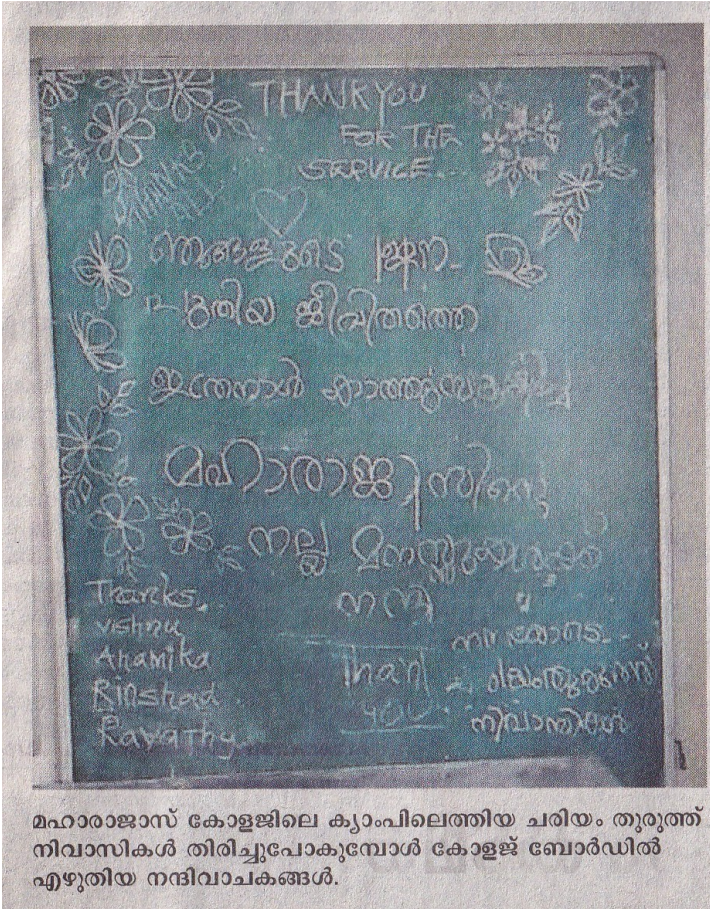 THANK YOU
FOR THE
SERVICE...
THANKS
ALL
ഞങ്ങളുടെ
പുതിയ ജീവിതത്തെ
ഇത്രനാൾ
മഹാരാജാസിന്റെ
നല്ല
നന്ദി
Thanks,
Vishnu
Anamika
Rinshad
Revathy
Thank
you
നന്ദിയോടെ..
നിവാസികൾ
മഹാരാജാസ് കോളജിലെ ക്യാംപിലെത്തിയ ചരിയം തുരുത്ത്
നിവാസികൾ തിരിച്ചുപോകുമ്പോൾ കോളജ് ബോർഡിൽ
എഴുതിയ നന്ദിവാചകങ്ങൾ.